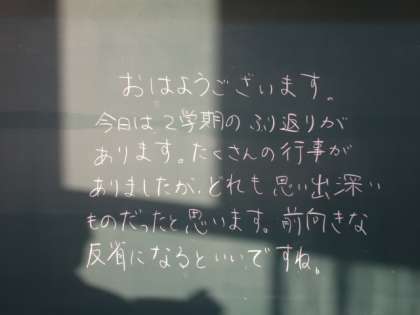 おはようございます。
今日は、2学期のふり返りが
あります。たくさんの行事が
ありましたが、どれも思い出深い
ものだったと思います。前向きな
反省になるといいですね。